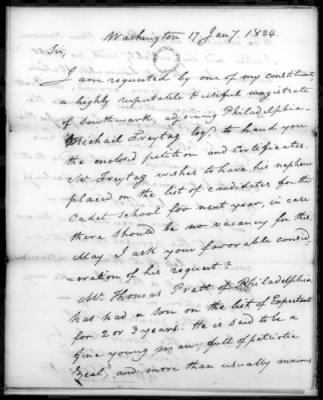 Washington 17 Jany. 1824.
Sir,
I am requested by one of my constituents
a highly reputable & useful magistrate
of Southwark, adjoining Philadelphia—
Michael Freytag Esqr. to hand you
the enclosed petition and Certificates.
Mr. Freytag wishes to have his nephew
placed on the list of candidates for the
Cadet School for next year, in case
there should be no vacancy for this.
May I ask your favorable consid-
eration of his request?
Mr. Thomas Pratt of Philadelphia
has had a son on the list of Expectants
for 2 or 3 years. He is said to be a
fine young man, full of patriotic
zeal, and more than usually anxious